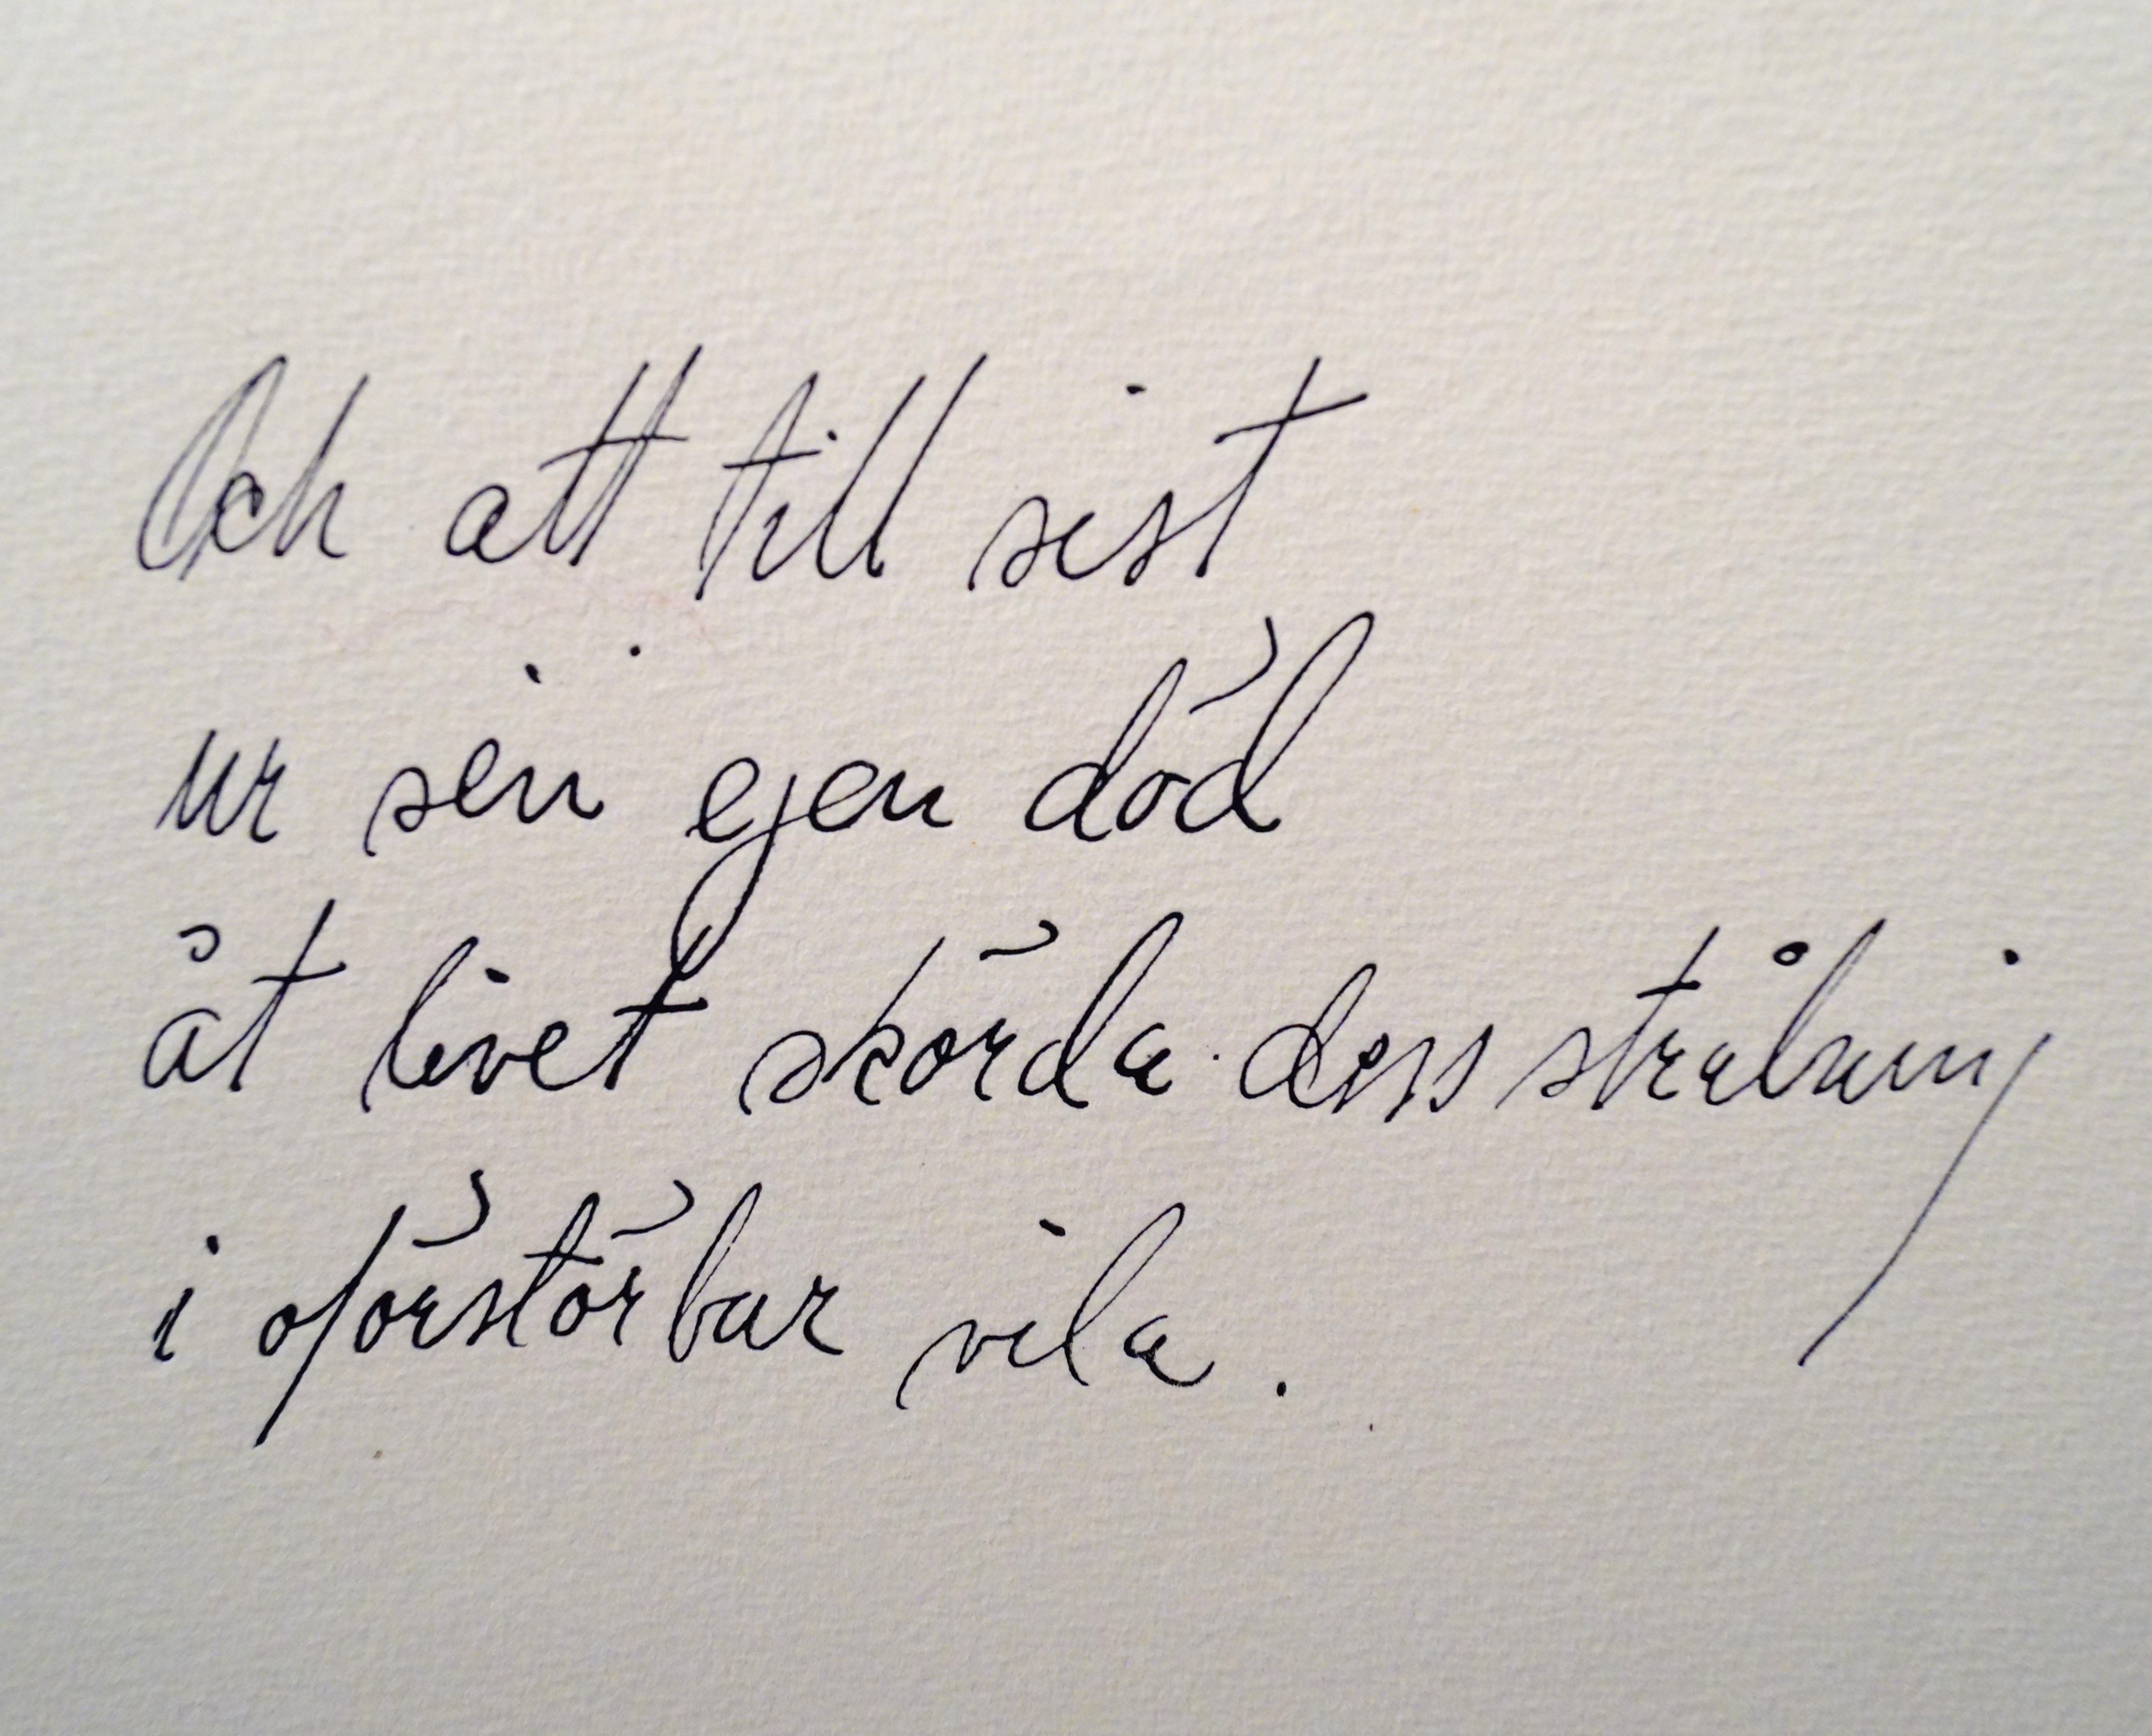 Och att till sist
ur sin egen död
åt livet skörda dess strålning
i oförstörbar vila.